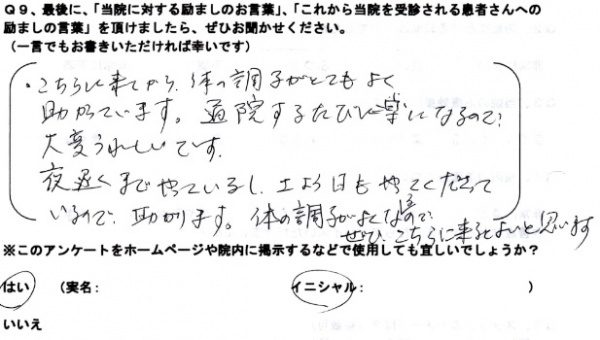 Q9、最後に、「当院に対する励ましのお言葉」、「これから当院を受診される患者さんへの
励ましの言葉」を頂けましたら、ぜひお聞かせください。
(一言でもお書きいただければ幸いです)
・こちらに来てから、体の調子がとてもよく
助かっています。通院するたびに楽になるので、
大変うれしいです。
夜遅くまでやっているし、土よう日もやってくださって
いるので、助かります。体の調子がよくなるので、
ぜひ、こちらに来るとよいと思います
※このアンケートをホームページや院内に掲示するなどで使用しても宜しいでしょうか?
はい (実名: イニシャル: )
いいえ